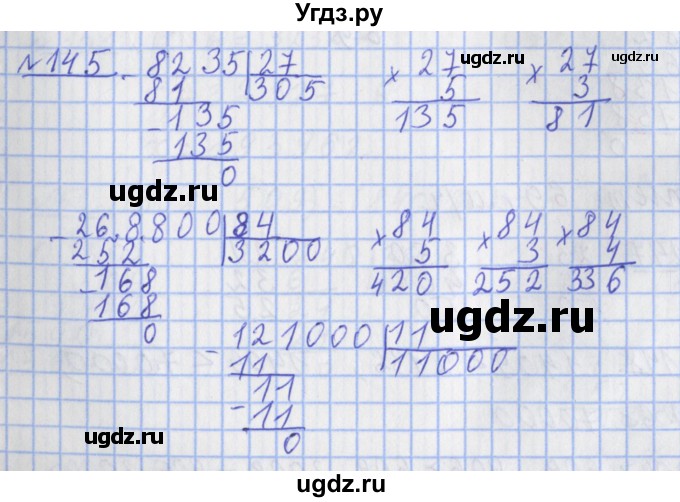 Угдз.ру
№145. - 8235 | 27
81 | 305
- 135
135
0
× 27
5
135
× 27
3
81
- 26.8.800 | 84
252 | 3200
- 168
168
0
× 84
5
420
× 84
3
252
× 84
4
336
- 121000 | 11
11 | 11000
11
- 11
0
ugdz.ru
ugdz.ru
ugdz.ru
ugdz.ru
ugdz.ru
ugdz.ru
ugdz.ru
ugdz.ru
ugdz.ru